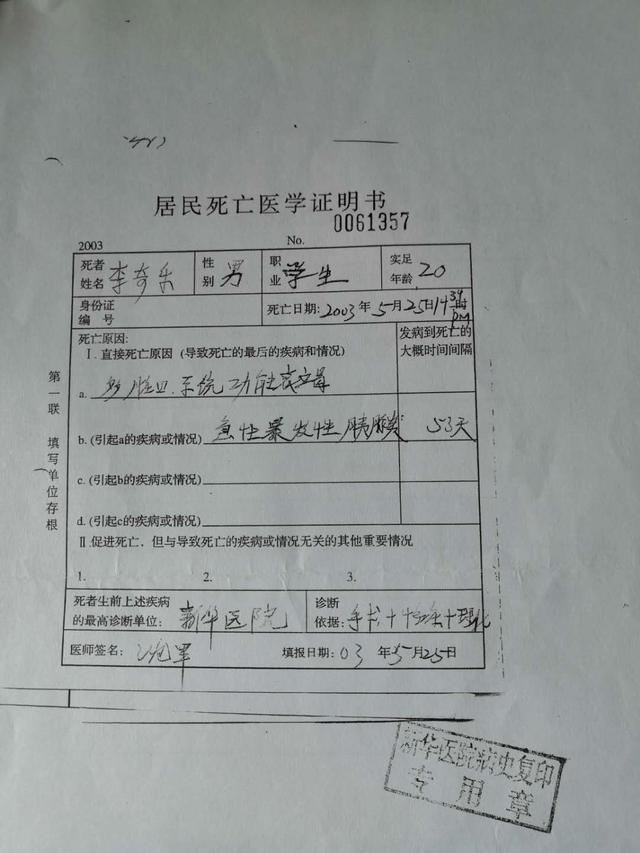 居民死亡医学证明书
0061357
2003 No.
死者姓名 李奇乐 性别 男 职业 学生 实足年龄 20
身份证编号 死亡日期: 2003 年 5 月 25 日 14 时
死亡原因: 发病到死亡的大概时间间隔
Ⅰ. 直接死亡原因 (导致死亡的最后的疾病和情况)
a. 系统功能
b. (引起a的疾病或情况) 急性暴发性胰腺炎 53天
c. (引起b的疾病或情况)
d. (引起c的疾病或情况)
Ⅱ 促进死亡, 但与导致死亡的疾病或情况无关的其他重要情况
1. 2. 3.
死者生前上述疾病的最高诊断单位: 新华医院 诊断依据: 手术+
医师签名: 填报日期: 03 年 5 月 25 日
第一联 填写单位存根
新华医院病史复印
专用章